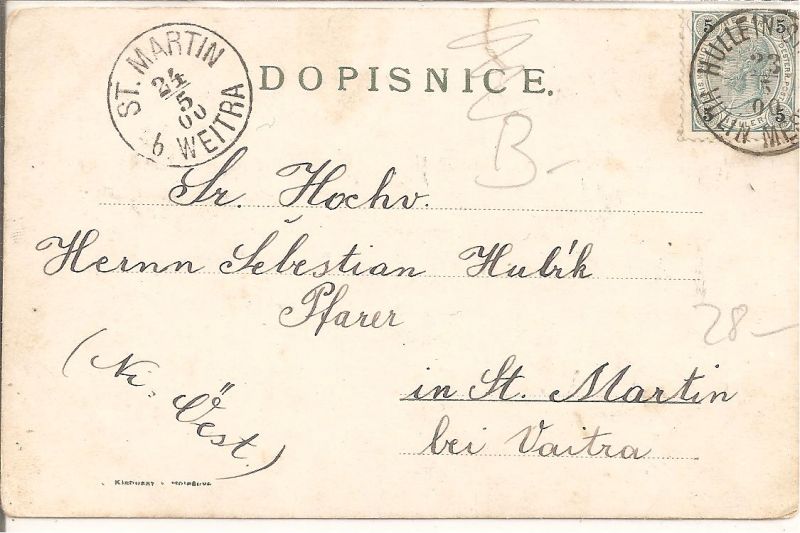 ST. MARTIN
24
5
00
b. WEITRA
DOPISNICE.
5 5
5 5
HULLEIN
23
5
00
B-
Sr. Hochv.
Hernn Sebestian Hubík
Pfarer
28-
(Ni. Öest.)
in St. Martin
bei Vaitra